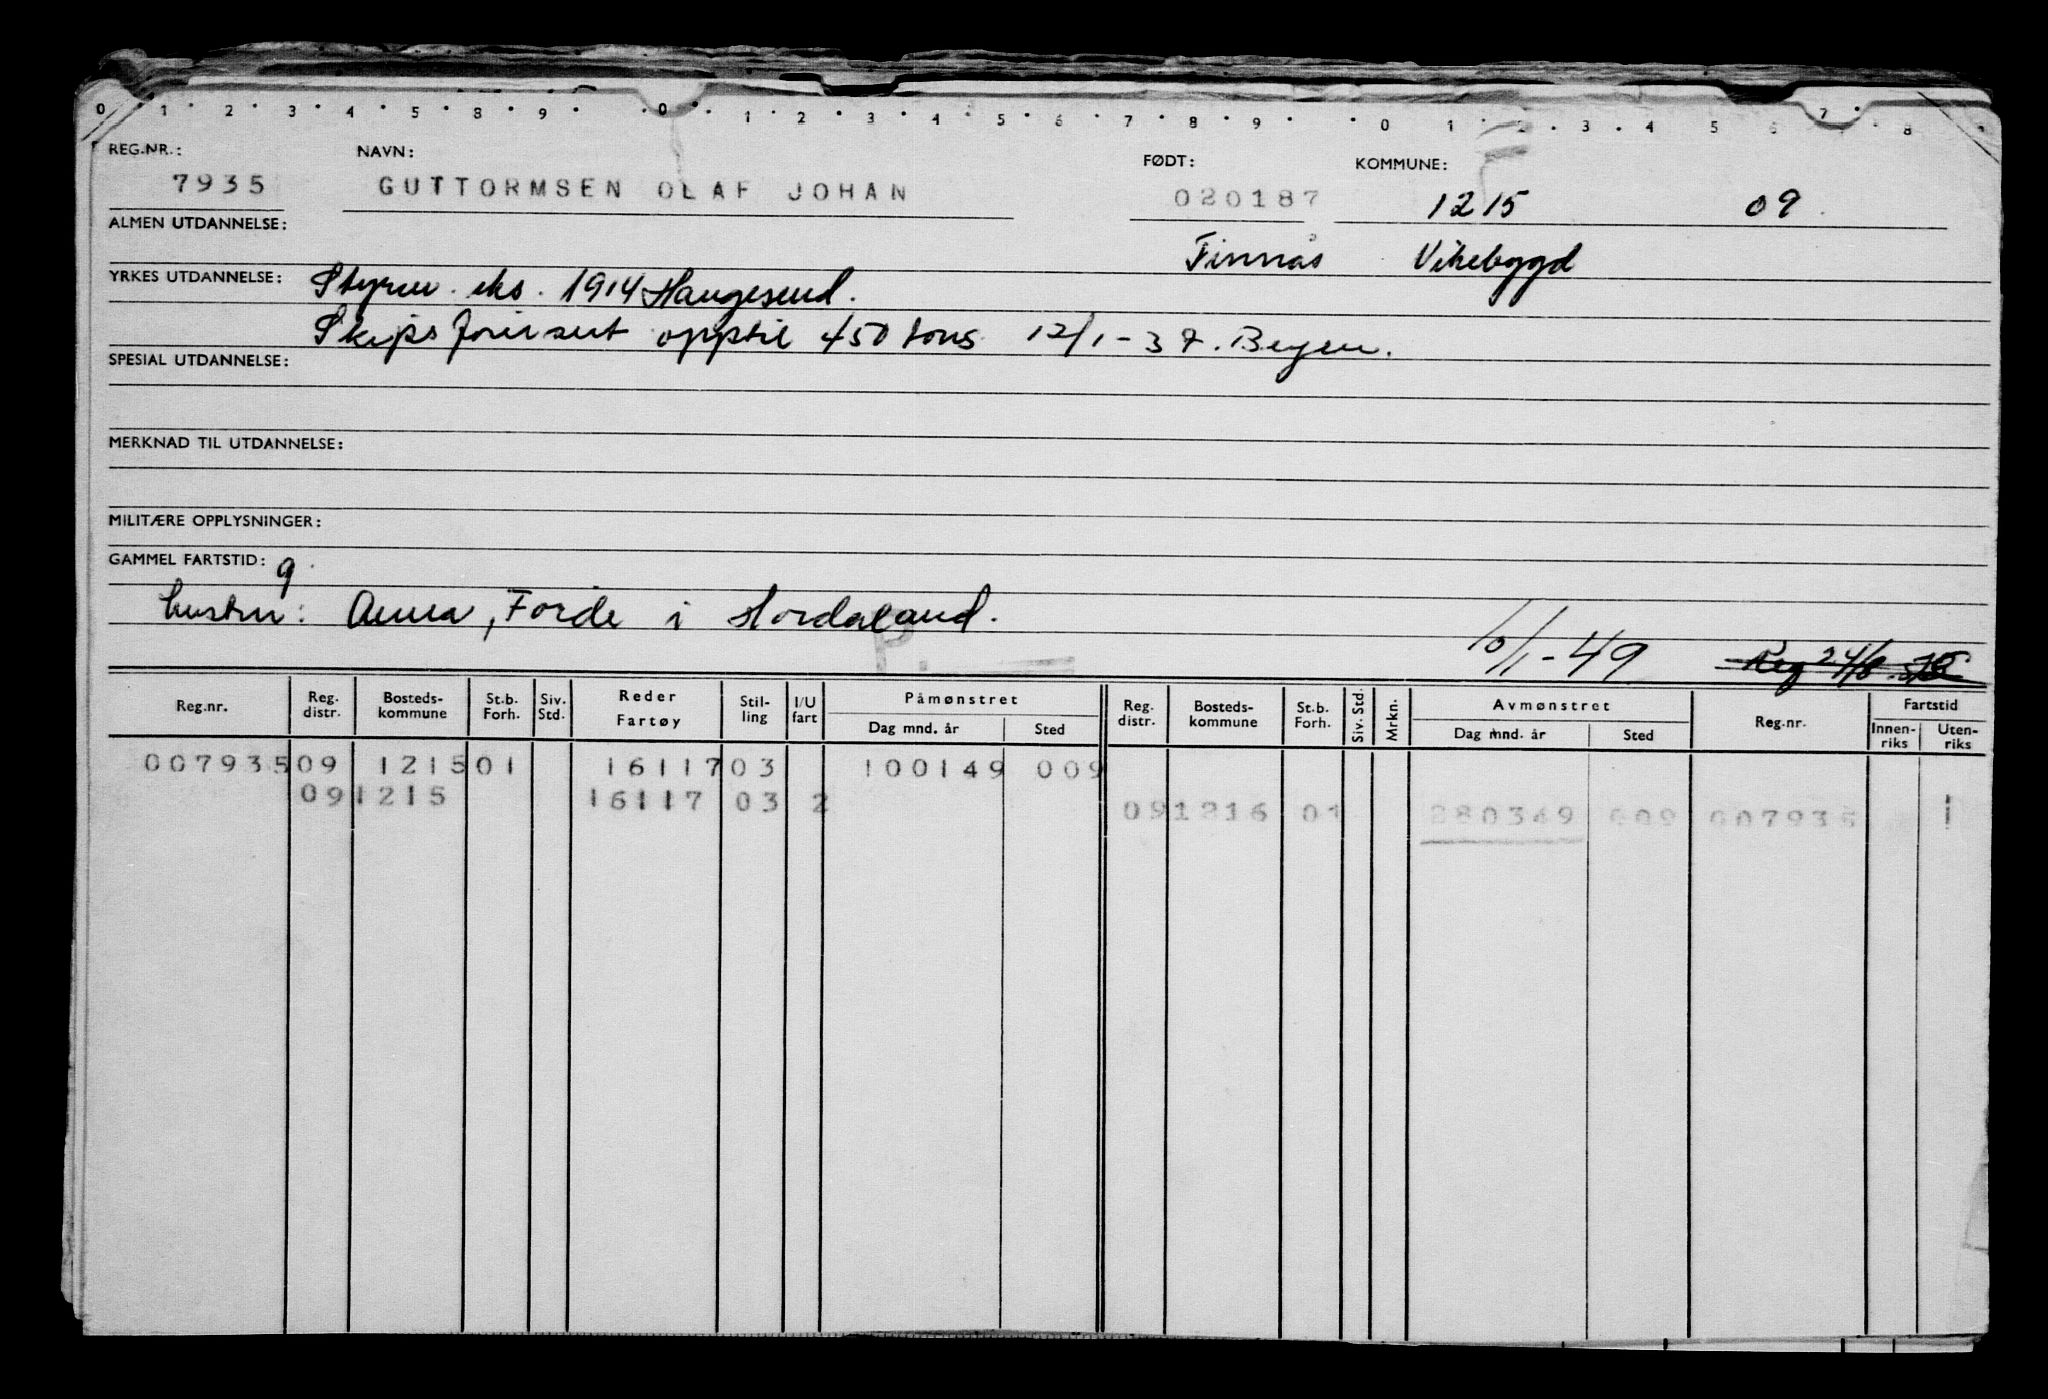 0 1 2 3 4 5 8 9 0 1 2 3 4 5 6 7 8 9 0 1 2 3 4 5 6 7 8
REG.NR.: NAVN: FØDT: KOMMUNE:
7935 GUTTORMSEN OLAF JOHAN 020187 1215 09
ALMEN UTDANNELSE:
Finnås Vikebygd
YRKES UTDANNELSE: Styrm. eks. 1914 Haugesund.
Skipsførersert opptil 450 tons 12/1-37. Bergen.
SPESIAL UTDANNELSE:
MERKNAD TIL UTDANNELSE:
MILITÆRE OPPLYSNINGER:
GAMMEL FARTSTID: 9
hustru: Anna, Førde i Hordaland.
P.
10/1-49 Reg 24/8
Reg.nr. Reg. distr. Bosteds-kommune St.b. Forh. Siv. Std. Reder Fartøy Stil-ling I/U fart Påmønstret Dag mnd. år Sted Reg. distr. Bosteds-kommune St.b. Forh. Siv. Std. Mrkn. Avmønstret Dag mnd. år Sted Reg.nr. Fartstid Innen-riks Uten-riks
007935 09 1215 01 16117 03 100149 009
09 1215 16117 03 2 09 1216 01 280349 009 007935 1